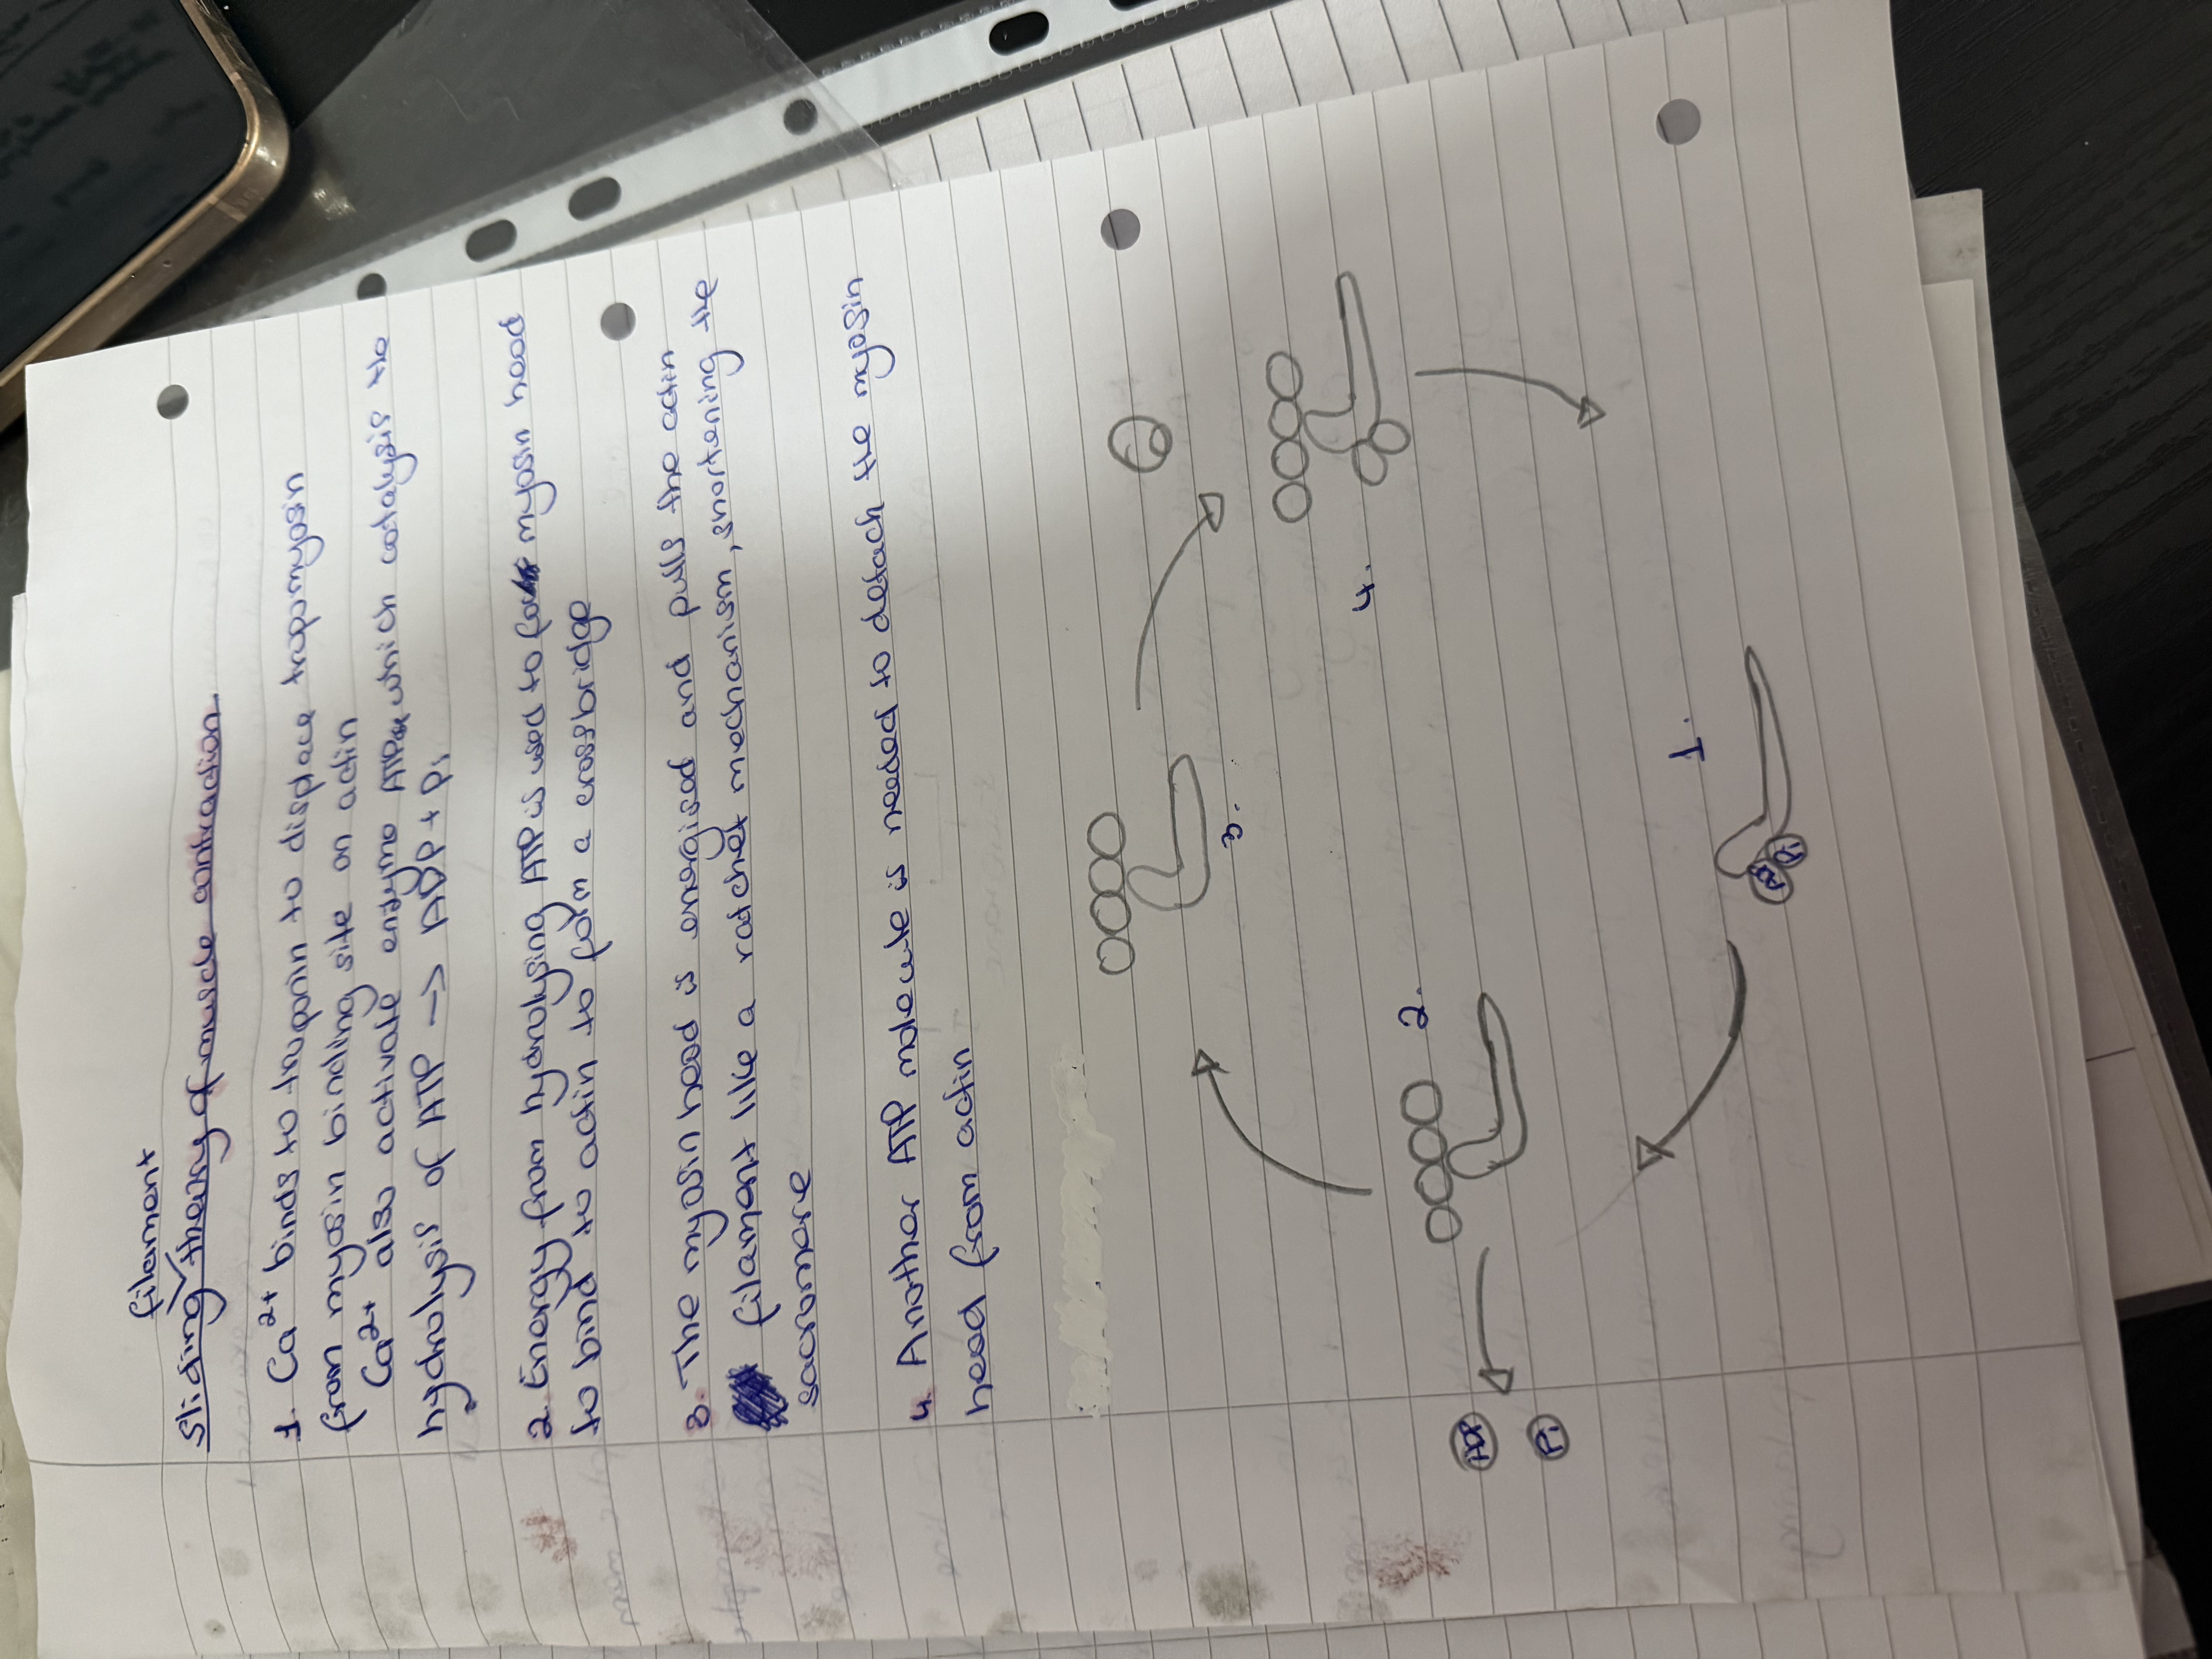 filament
Sliding theory of muscle contraction
1. Ca2+ binds to troponin to displace tropomyosin
from myosin binding site on actin
Ca2+ also activate enzyme ATPase which catalysis the
hydrolysis of ATP -> ADP + Pi
2. Energy from hydrolysing ATP is used to for myosin head
to bind to actin to form a crossbridge
3. The myosin head is energised and pulls the actin
filament like a ratchet mechanism, shortening the
sacromere
4. Another ATP molecule is needed to detach the myosin
head from actin
3.
4.
2.
ADP
Pi
1.
ADP
Pi